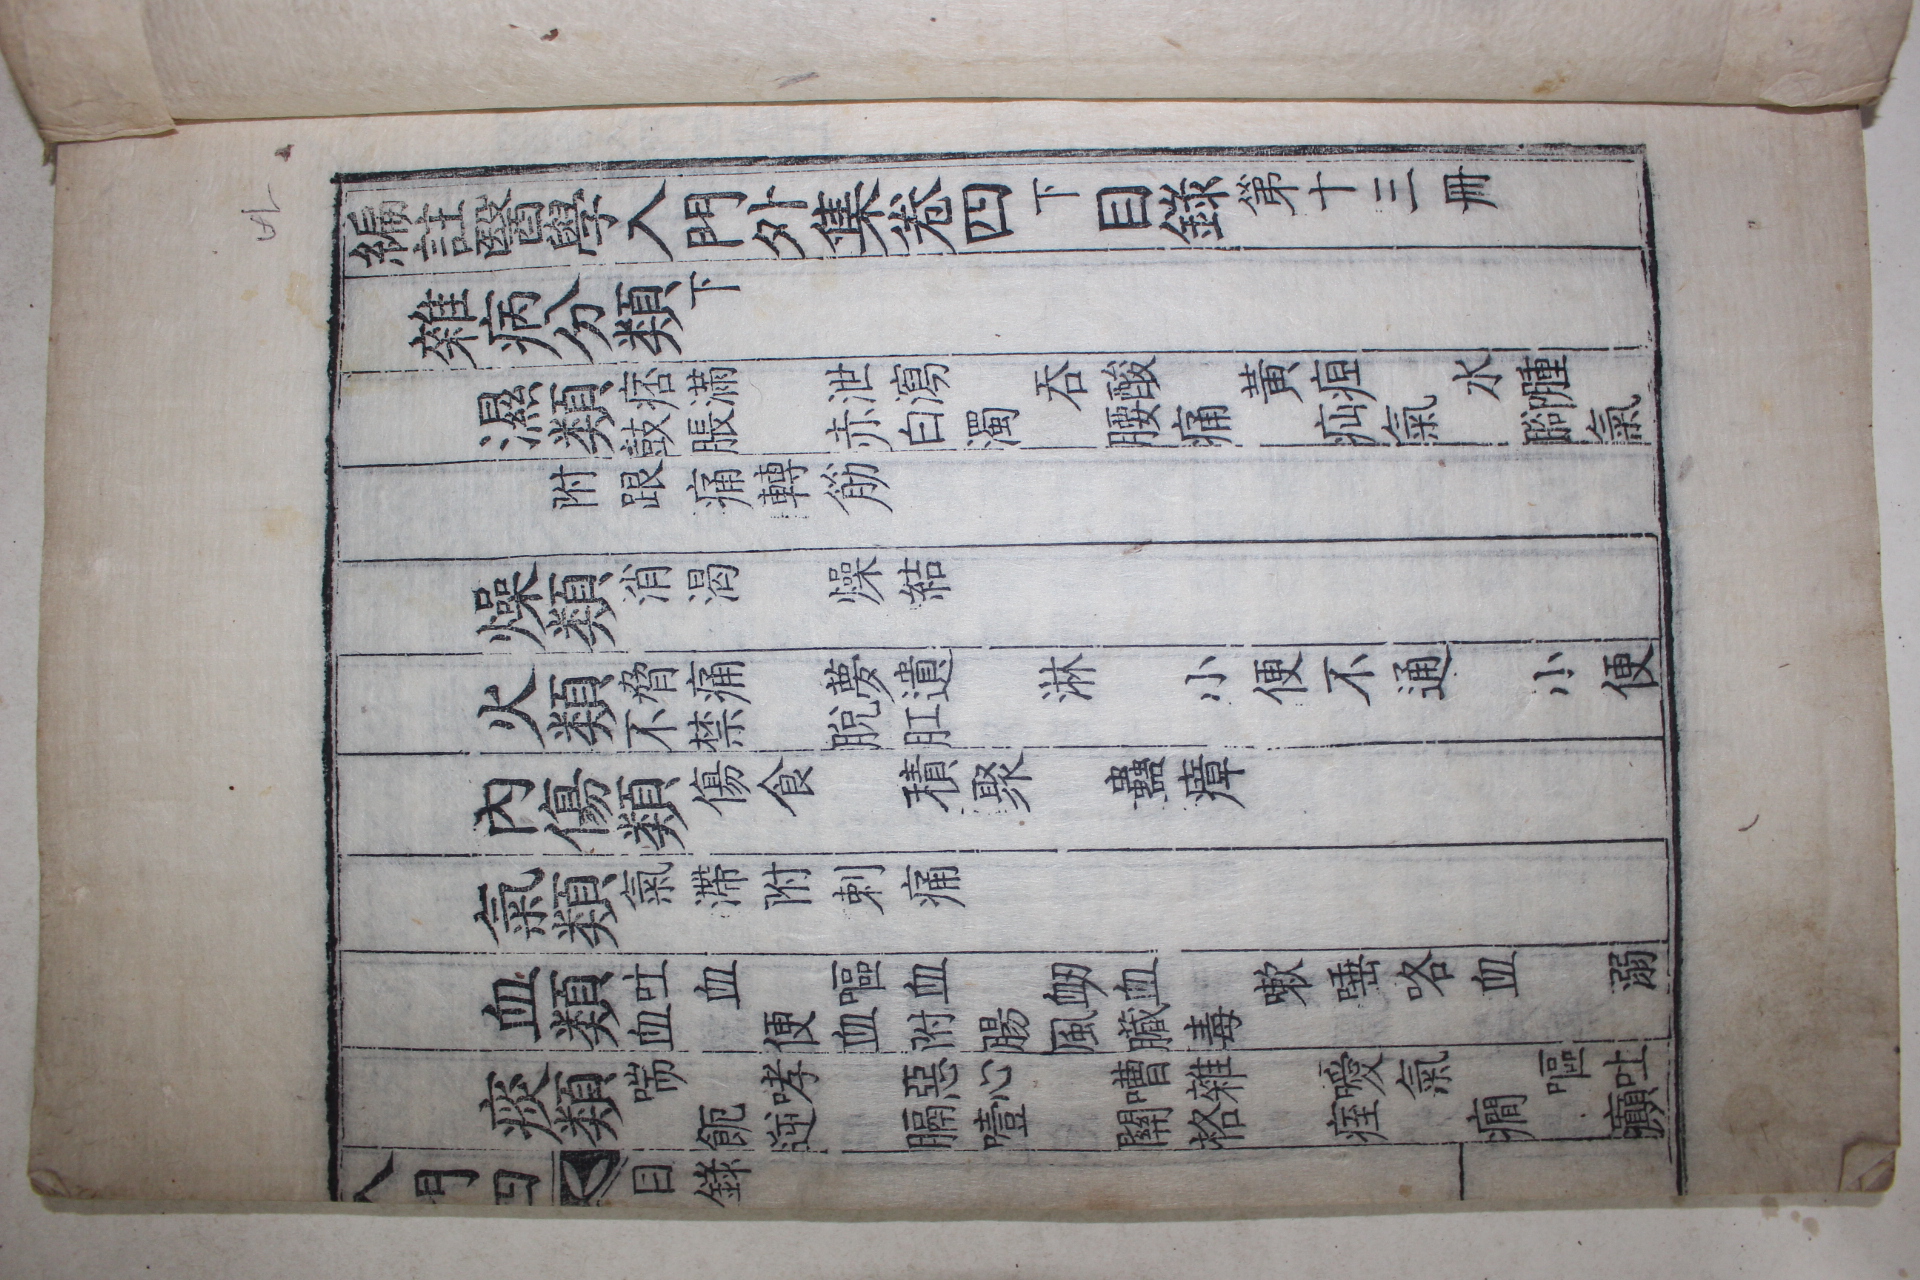 바
編註醫學入門外集卷四下 目錄 第十三冊
雜病分類下
濕類 痞滿 泄瀉 吞酸 黃疸 水腫
鼓脹 赤白濁 腰痛 疝氣 腳氣
附跟痛轉筋
燥類 消渴 燥結
火類 脅痛 夢遺 淋 小便不通 小便
不禁 脫肛
內傷類 傷食 積聚 蠱瘴
氣類 氣滯附刺痛
血類 吐血 嘔血 衂血 嗽唾咯血 溺
血 便血附腸風臟毒
痰類 喘 哮 惡心 嘈雜 噯氣 嘔吐
飥逆 膈噎 關格 痓 癎 癲
入門四 目錄